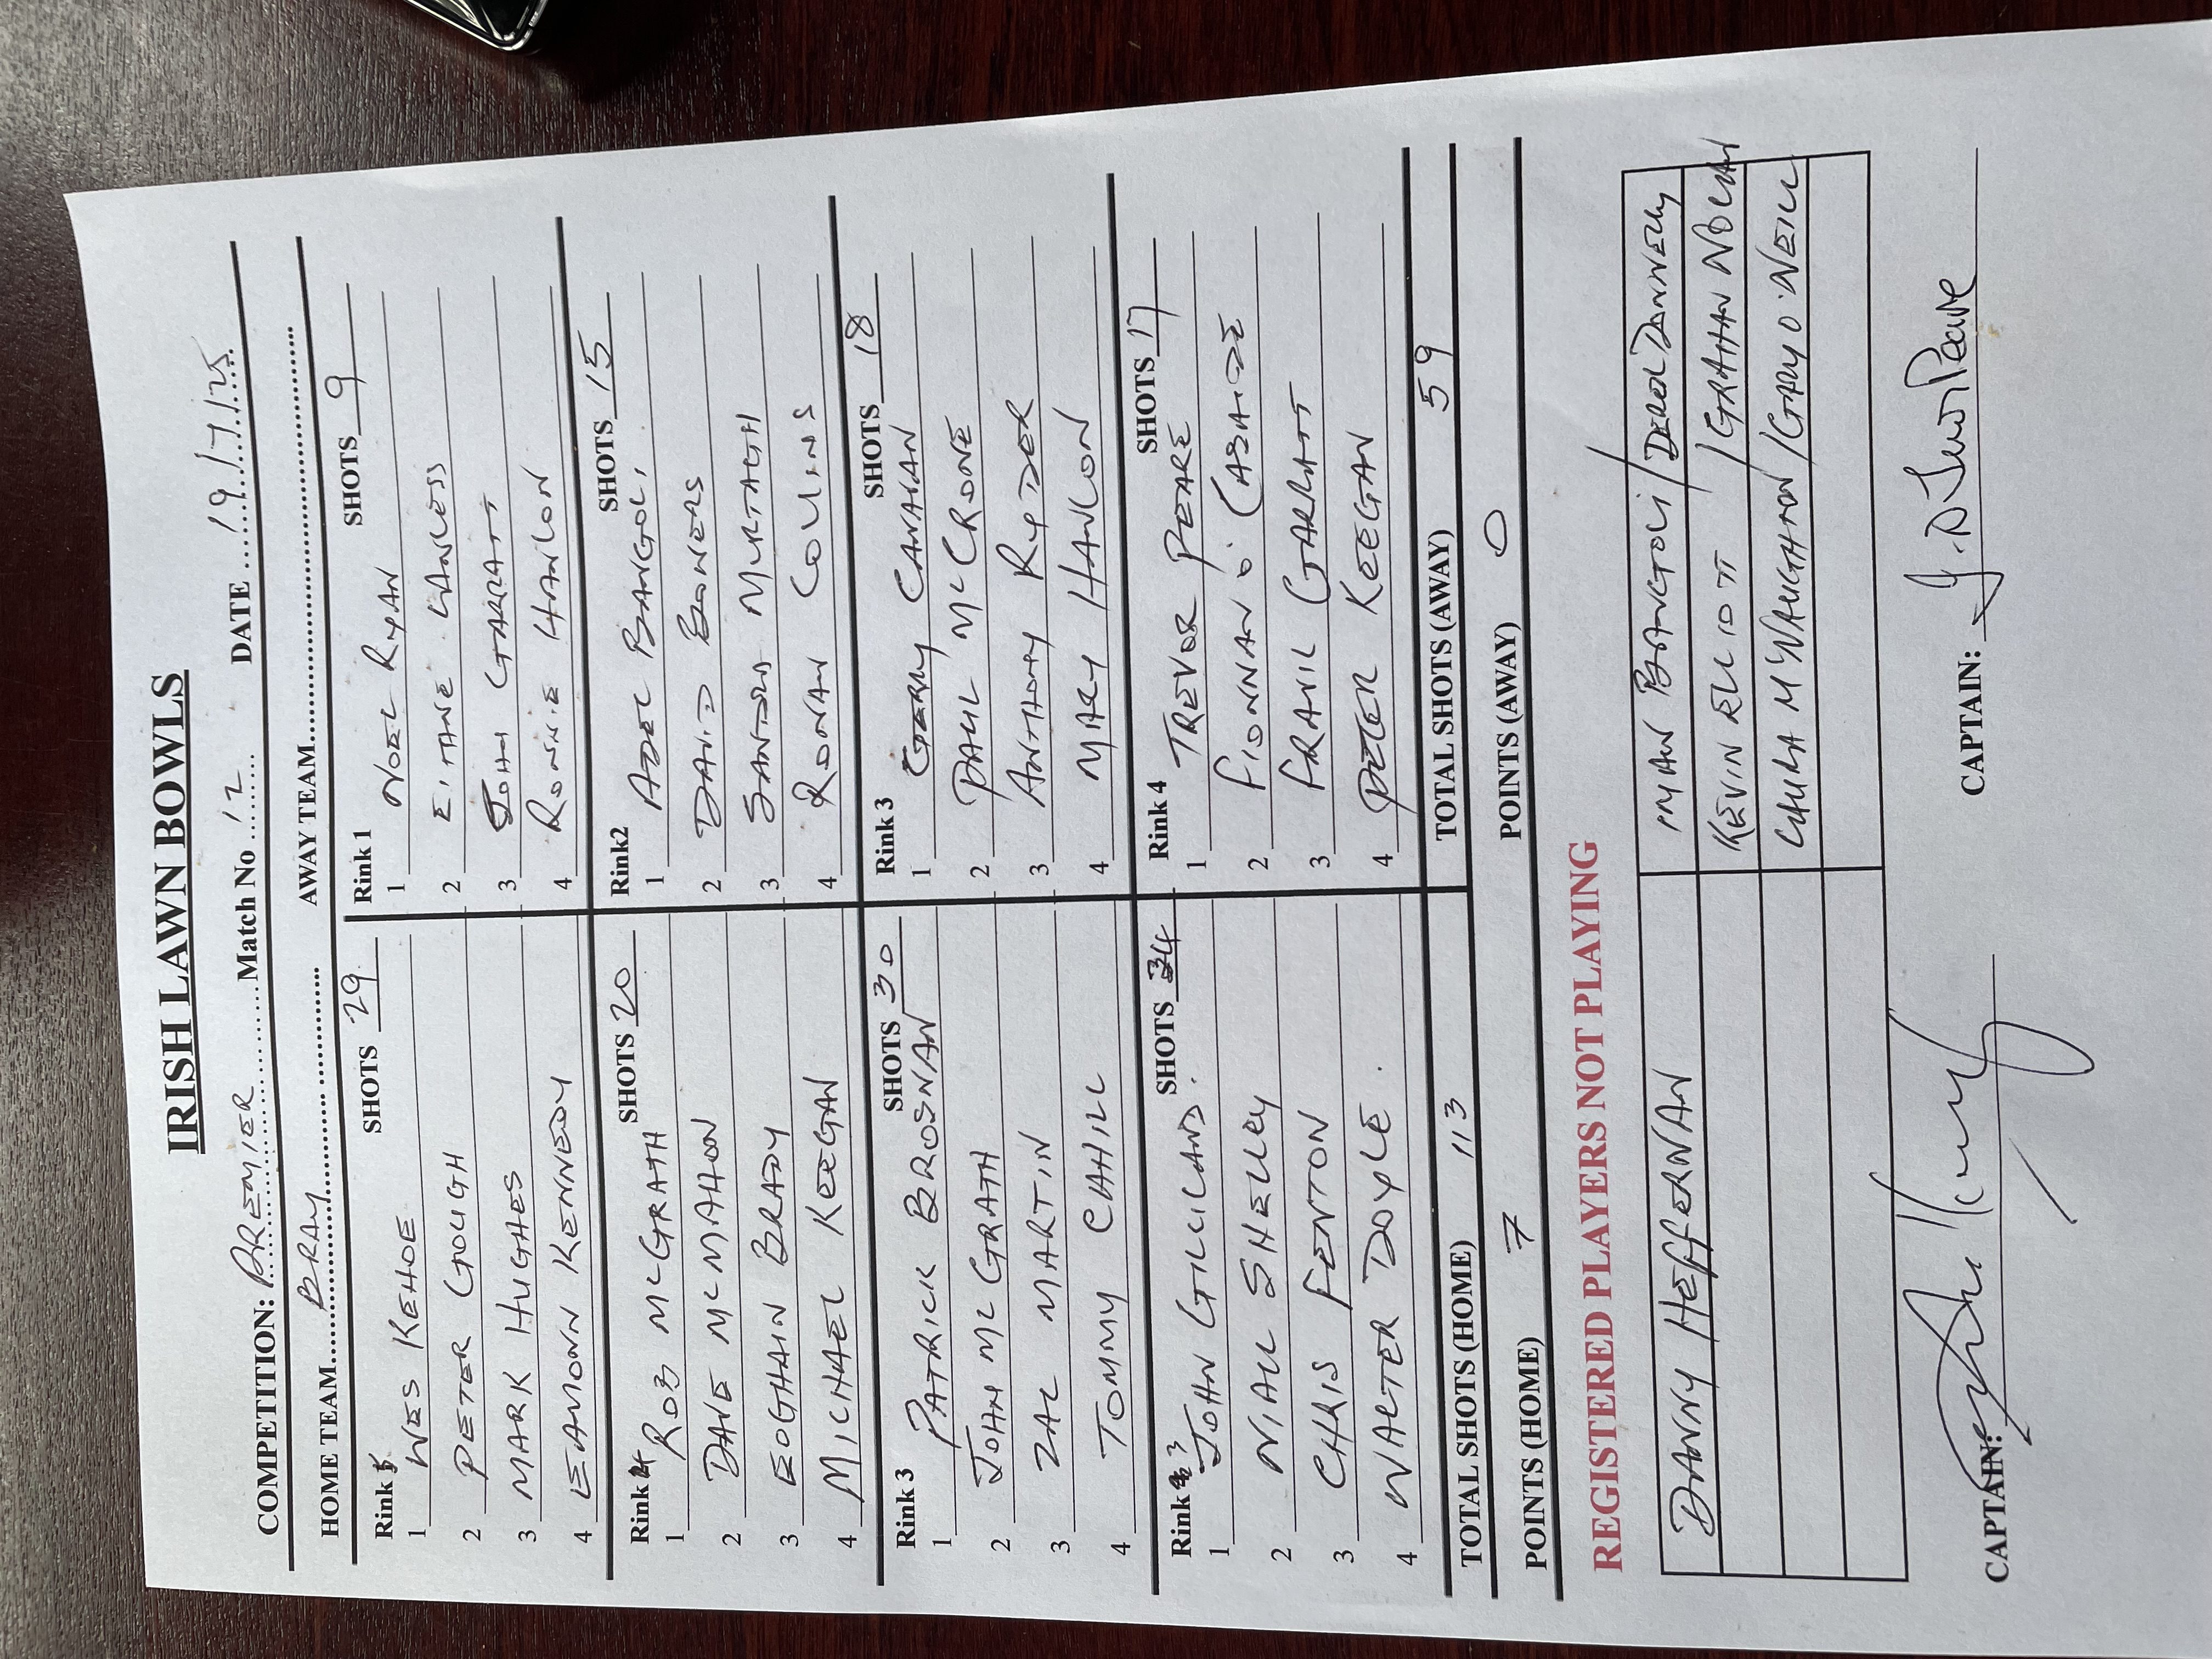 IRISH LAWN BOWLS
COMPETITION: PREMIER Match No 12 DATE 19/7/25
HOME TEAM BRAY AWAY TEAM
Rink SHOTS 29 Rink 1 SHOTS 9
1 WES KEHOE 1 NOEL RYAN
2 PETER GOUGH 2 LAWLESS
3 MARK HUGHES 3 JOHN GARRATT
4 EAMONN KENNEDY 4 RONNIE HANLON
Rink 4 SHOTS 20 Rink2 SHOTS 15
1 ROB McGRATH 1 AZEL BANGOLI
2 DAVE McMAHON 2 DAVID BOWERS
3 EOGHAIN BRADY 3 MURTAGH
4 MICHAEL KEEGAN 4 RONAN COLLINS
Rink 3 SHOTS 30 Rink 3 SHOTS 18
1 PATRICK BROSNAN 1 GERRY CANAVAN
2 JOHN McGRATH 2 PAUL McCRONE
3 ZAC MARTIN 3 ANTHONY RYDER
4 TOMMY CAHILL 4 MARY HANLON
Rink 3 SHOTS 34 Rink 4 SHOTS 17
1 JOHN GILLILAND. 1 TREVOR PEARE
2 NIALL SHELLEY 2 FIONNAN O'
3 CHRIS FENTON 3 GARRATT
4 WALTER DOYLE. 4 PETER KEEGAN
TOTAL SHOTS (HOME) 113 TOTAL SHOTS (AWAY) 59
POINTS (HOME) 7 POINTS (AWAY) 0
REGISTERED PLAYERS NOT PLAYING
DANNY HEFFERNAN BANGOLI / DONNELLY
KEVIN ELLIOTT / GRAHAM NOLAN
LAURA McNAUGHTON / GARY O'NEILL
CAPTAIN: CAPTAIN: